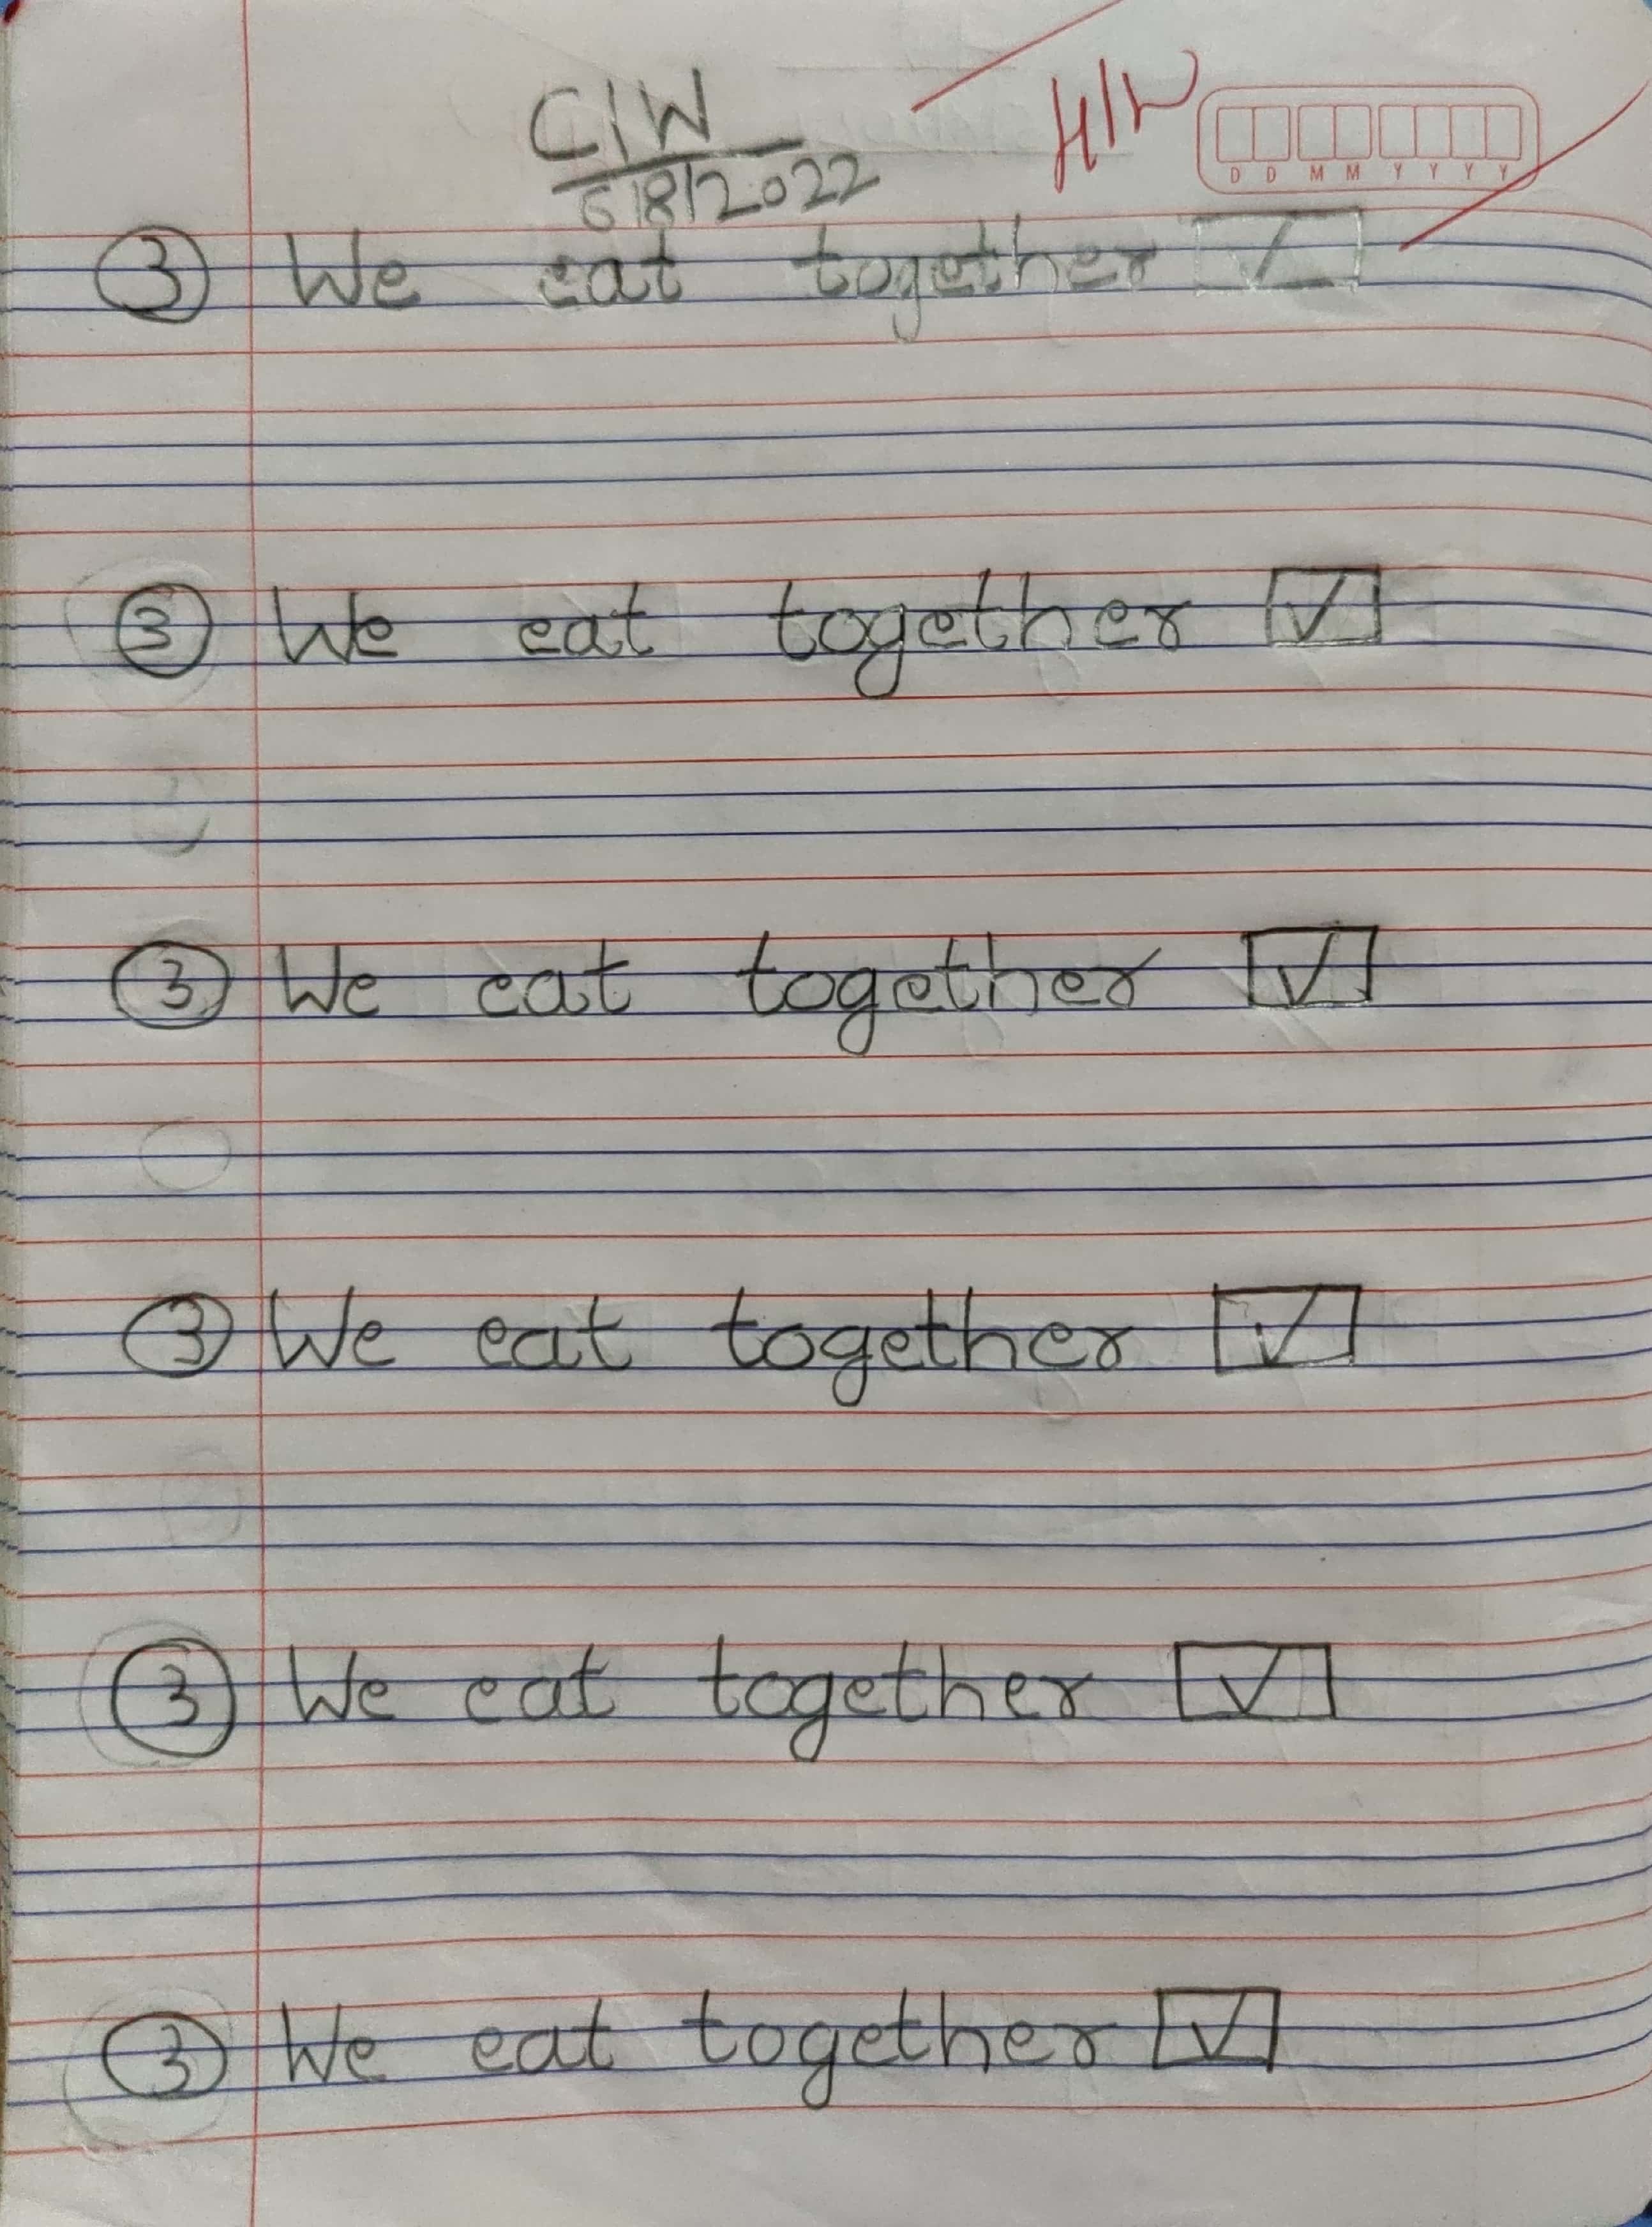 C/W
H/W
6/8/2022
D D M M Y Y Y Y
③ We eat together ✓
③ We eat together ✓
③ We eat together ✓
③ We eat together ✓
③ We eat together ✓
③ We eat together ✓